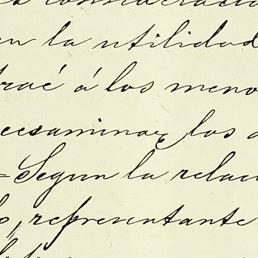 consideracio
n la utilidad
trae á los meno
ecsaminar los d
= Segun la relac
s, representante